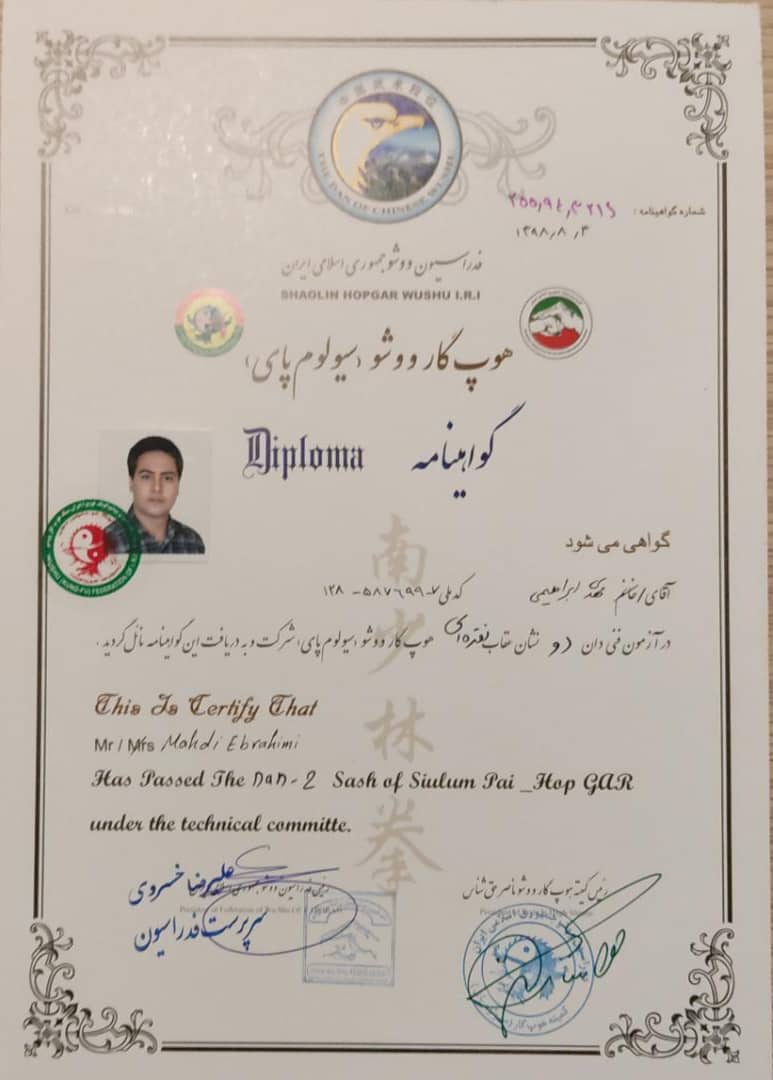 中国武术段位
THE DAN OF CHINESE WUSHU
شماره گواهینامه :
۱۳۹۸/۸/۴
فدراسیون ووشو جمهوری اسلامی ایران
SHAOLIN HOPGAR WUSHU I.R.I
هوپ گار ووشو (سیولوم پای)
Diploma گواهینامه
گواهی می شود
آقای/خانم مهدی ابراهیمی کد ملی ۷-۵۸۷۶۹۹-۱۲۸
در آزمون فنی دان (دو نشان عقاب نقره‌ای هوپ گار ووشو (سیولوم پای) شرکت و به دریافت این گواهینامه نائل گردید .
南少林拳
This Is Certify That
Mr / Mrs Mahdi Ebrahimi
Has Passed The Dan-2 Sash of Siulum Pai _Hop GAR
under the technical committe.
رئیس کمیته هوپ گار ووشو ناصر حق شناس
رئیس فدراسیون ووشو جمهوری اسلامی
علیرضا خسروی
سرپرست فدراسیون